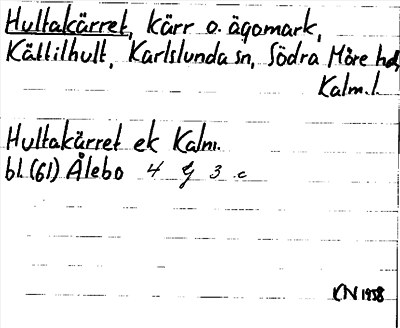 Hultakärret, kärr o. ägomark,
Källilhult, Karlslunda sn, Södra Möre hd,
Kalm. l.
Hultakärret ek Kalm.
bl. (61) Ålebo 4 G 3 c
KN 1958